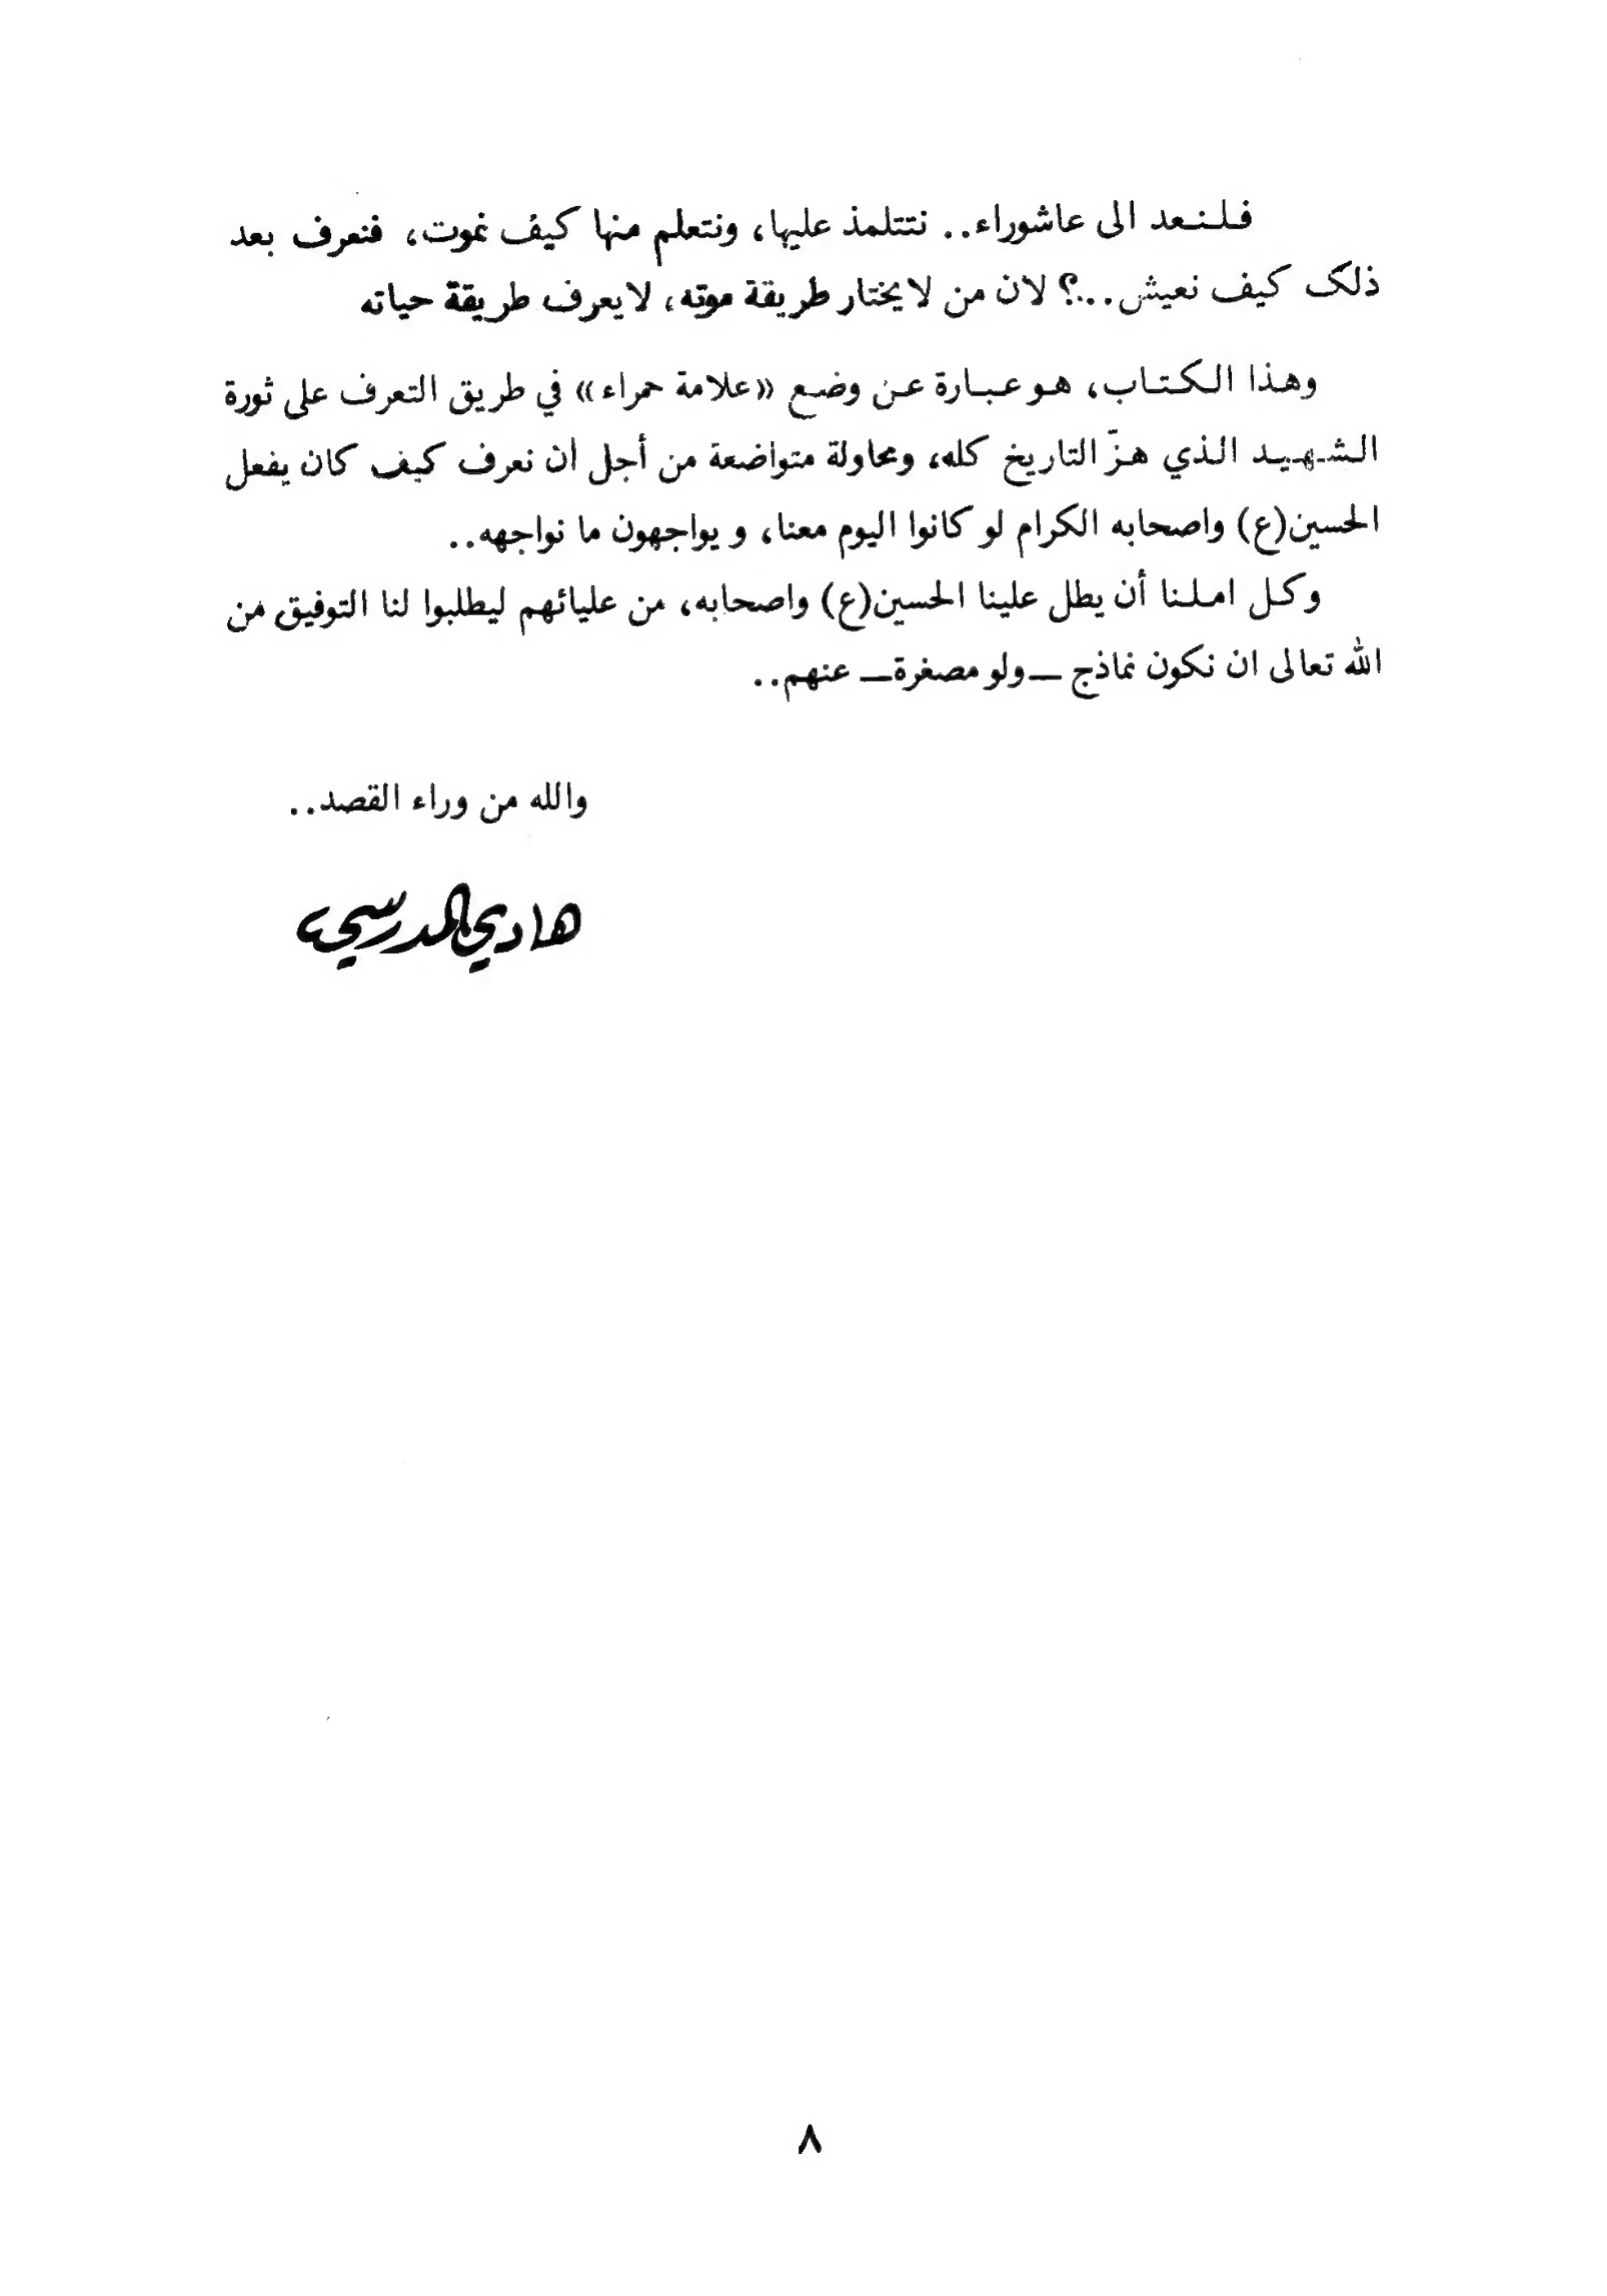 فلنعد الى عاشوراء.. نتتلمذ عليها، ونتعلم منها كيف نموت، فنعرف بعد
ذلك كيف نعيش..؟ لان من لا يختار طريقة موته، لا يعرف طريقة حياته
وهذا الكتاب، هو عبارة عن وضع «علامة حمراء» في طريق التعرف على ثورة
الشهيد الذي هزّ التاريخ كله، ومحاولة متواضعة من أجل ان نعرف كيف كان يفعل
الحسين(ع) واصحابه الكرام لو كانوا اليوم معنا، و يواجهون ما نواجهه..
وكل املنا أن يطل علينا الحسين(ع) واصحابه، من عليائهم ليطلبوا لنا التوفيق من
الله تعالى ان نكون نماذج — ولو مصغرة — عنهم..
والله من وراء القصد..
هادي المدرسي
٨